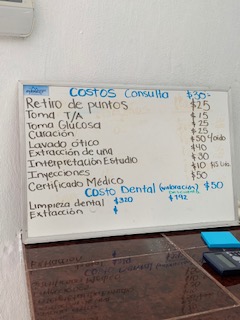 COSTOS Consulla $30-
Retiro de puntos $25
Toma T/A $15
Toma Glucosa $25
Curación $25
Lavado ótico $50 c/oido
Extracción de uña $40
Interpretación Estudio $30
Inyecciones $10
Certificado Médico $50
COSTO Dental (valoración) $50
Limpieza dental $320 $192
Extracción $